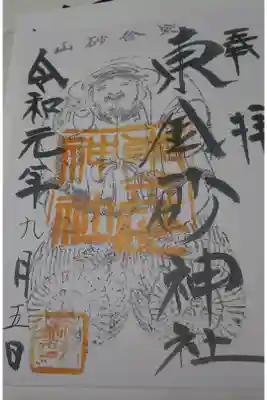 奉拝
東金砂神社
令和元年九月五日